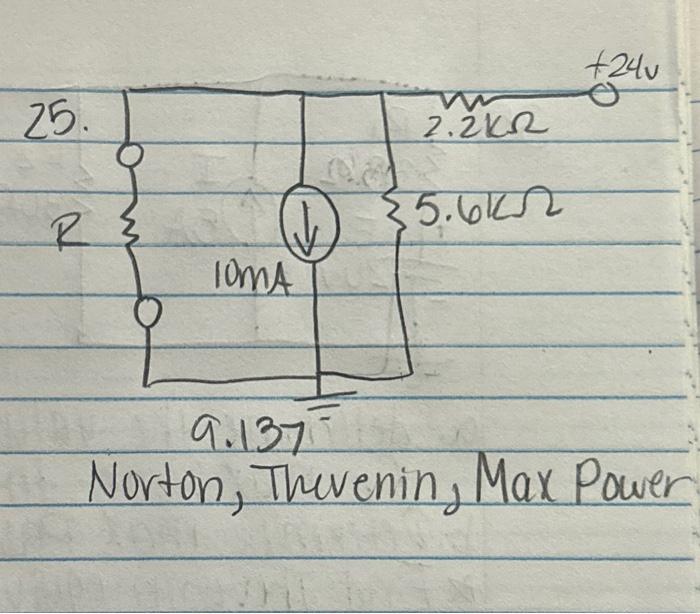 +24v
25.
2.2KΩ
R
5.6KΩ
10mA
9.137
Norton, Thevenin, Max Power